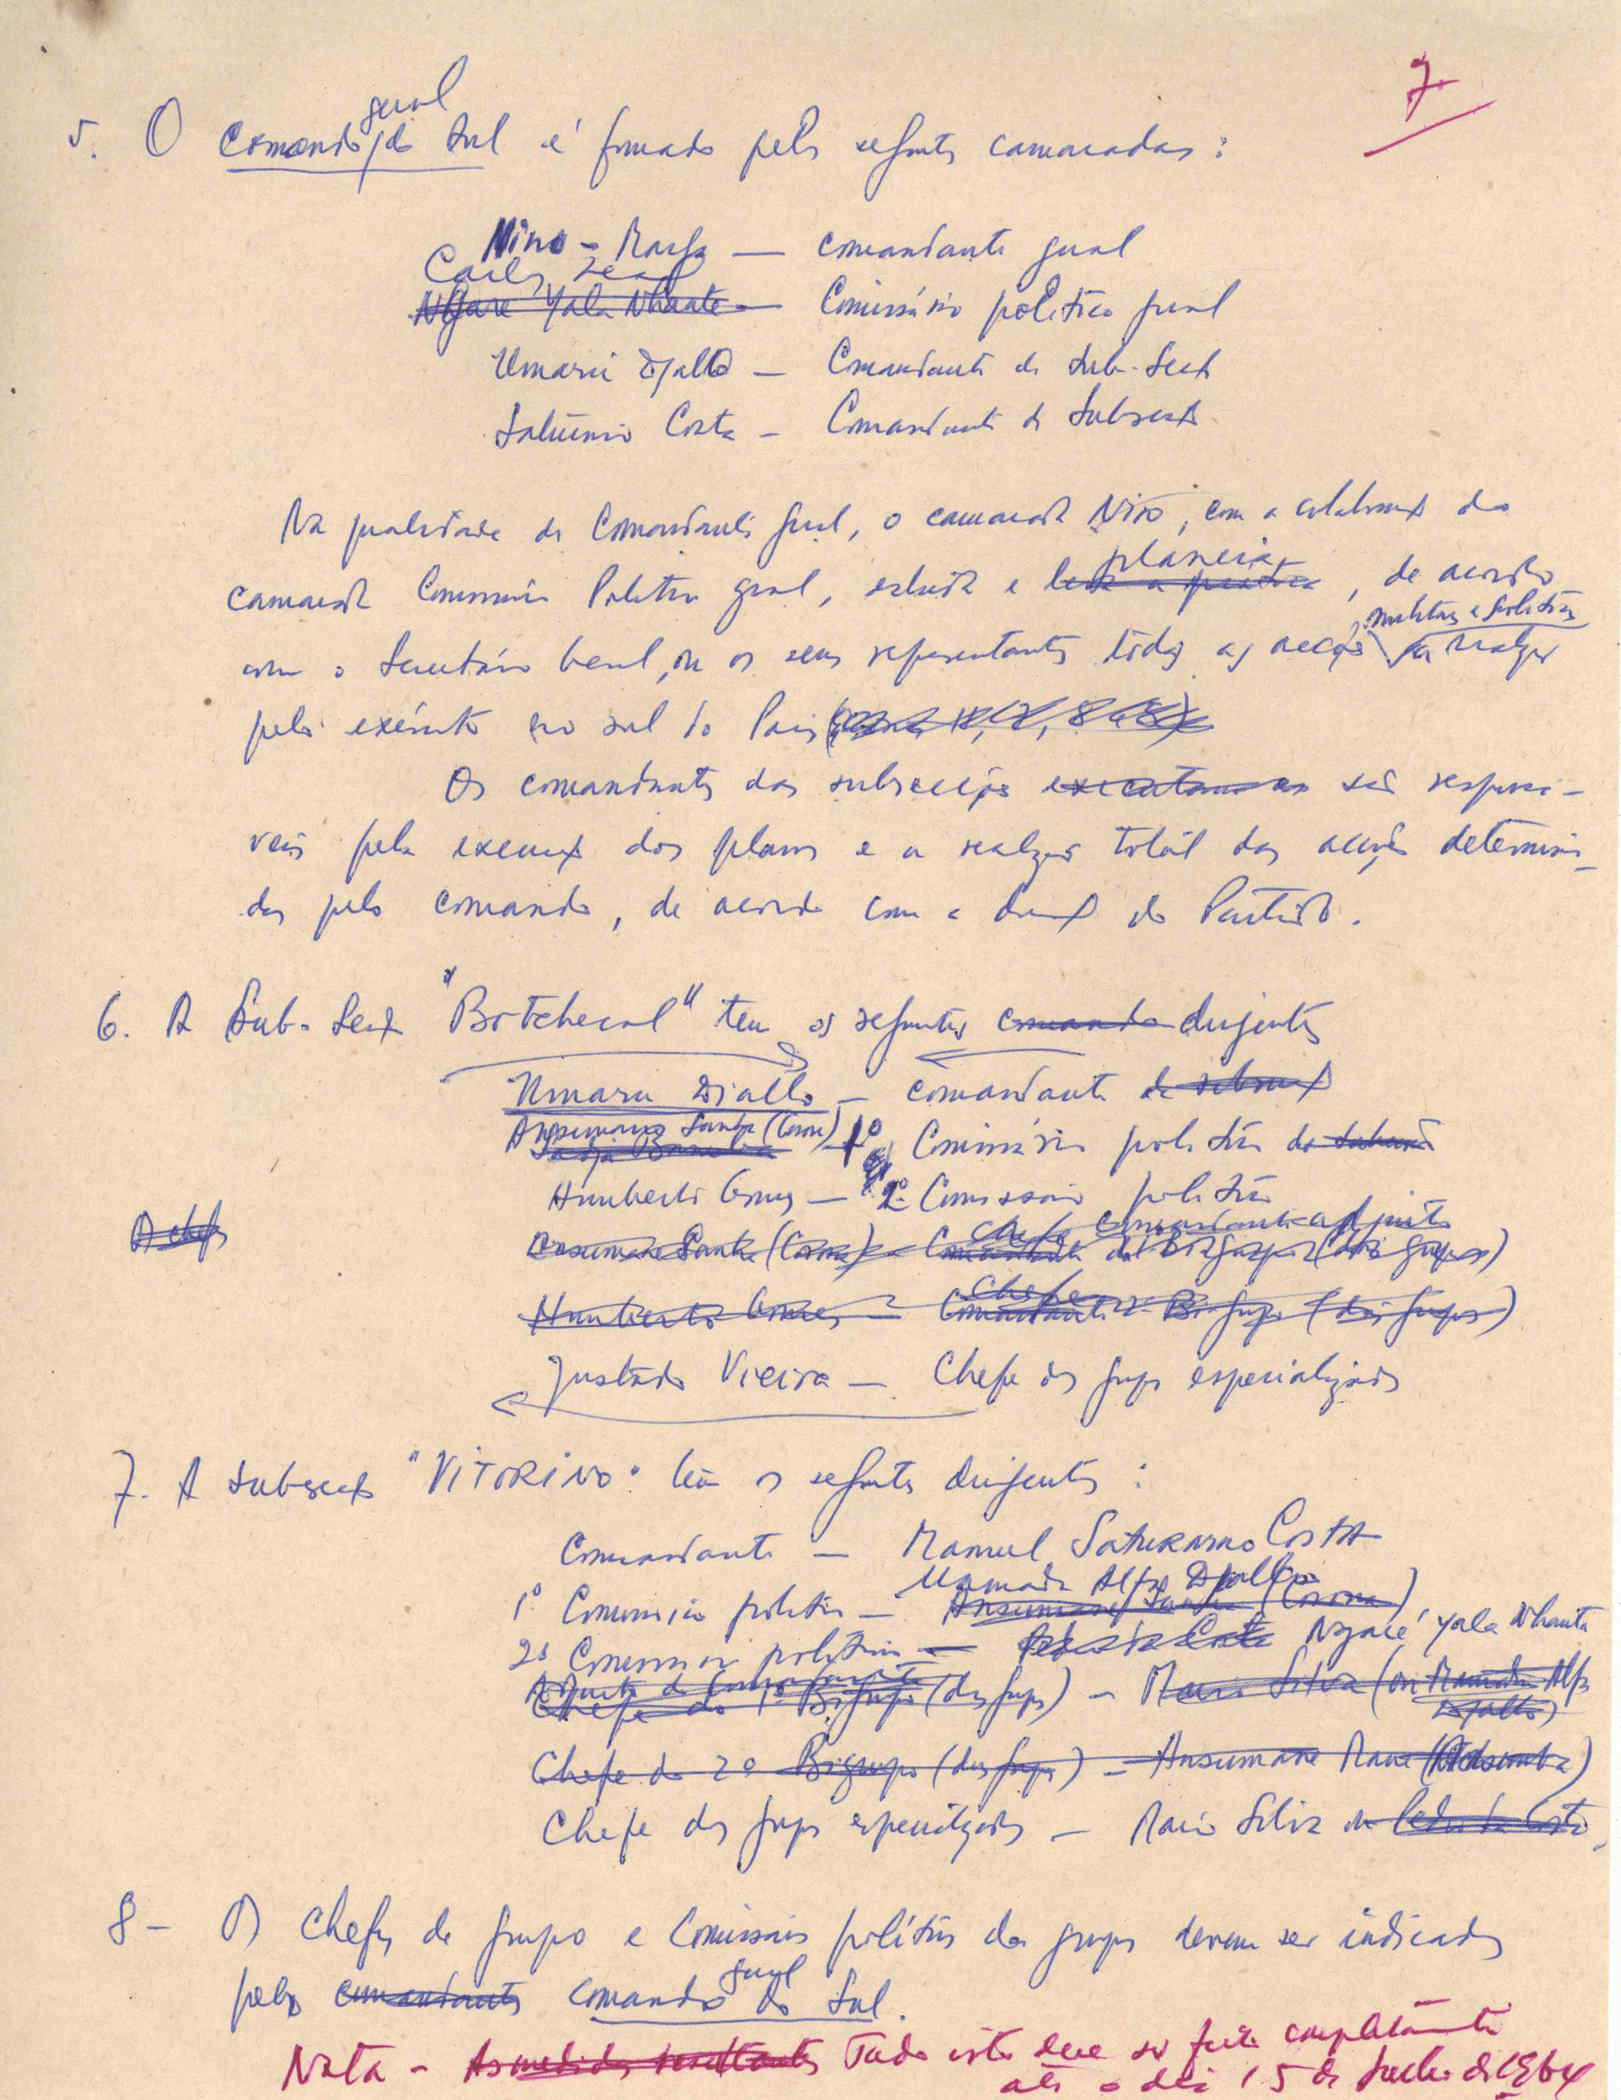 7
5. O Comando geral do Sul é formado pelos seguintes camaradas:
Nino - Marga — Comandante geral
Carlos Leal
Ngare Yala Nhante — Comissário político geral
Umaru Djallo — Comandante de Sub-Secção
Saturnino Costa — Comandante de Subsecção
Na qualidade de Comandante geral, o camarada Nino, com a colaboração do
planeia
camarada Comissário Político geral, estuda e leva a prática, de acordo
militares e políticas
com o Secretário Geral, ou os seus representantes todas as acções a realizar
pelo exército no sul do País
Os comandantes das subsecções executam as são responsá-
veis pela execução dos planos e a realização total das acções determina-
das pelo comando, de acordo com a direcção do Partido.
6. A Sub-Secção "Botchecol" tem os seguintes comando dirigentes
Umaru Djallo — Comandante de subsecção
Ansumane Sanha (Corona) 1º Comissário político da
Humberto Gomes — 2º Comissário político
A chefs
comandante adjunto
Ansumane Sanha (Corona) — Comandante do Bigrupo (dois grupos)
Chefe
Humberto Gomes — Comandante Bigrupo (dois grupos)
Justado Vieira — Chefe dos grupos especializados
7. A Subsecção "VITORINO" tem os seguintes dirigentes:
Comandante — Manuel Saturnino Costa
Mamadu Alfa Djallo
1º Comissário político — Ansumane Sanha (Corona)
2º Comissário político — Pedro da Costa Ngaré Yala Nhanta
Adjunto do Comandante
Chefe do 1º Bigrupo (dois grupos) — Mario Silva (ou Mamadu Alfa
Djallo)
Chefe do 2º Bigrupo (dois grupos) — Ansumane Mane
Chefe dos grupos especializados — Mario Silva ou Pedro da Costa
8 - Os Chefes de grupo e Comissários políticos dos grupos devem ser indicados
pelo comandante comando geral do Sul.
Nota - As medidas resultantes Tudo isto deve ser feito completamente
até o dia 15 de Julho de 1964